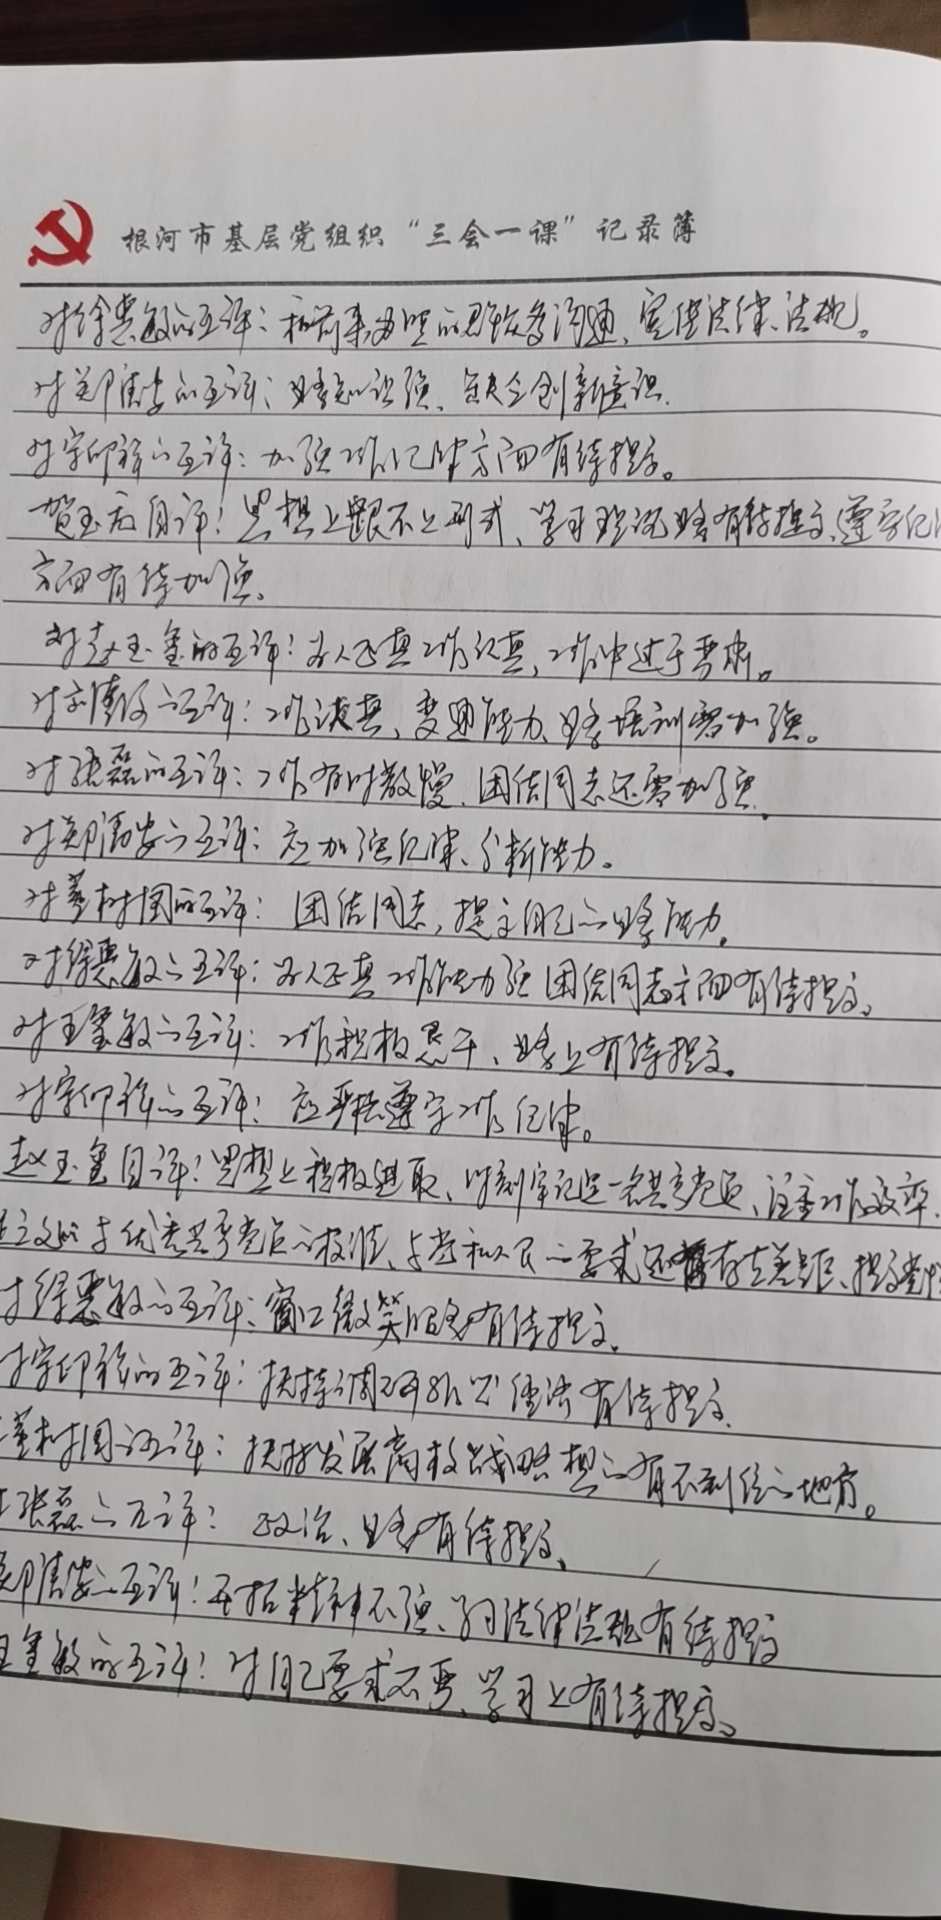 根河市基层党组织“三会一课”记录簿
对徐惠敏的互评：和前来办照的思维多沟通、宣传法律、法规。
对郑清安的互评：业务知识强、缺乏创新意识.
对宇仰祥的互评：加强工作纪律方面有待提高。
贺玉 自评：思想上跟不上形式、学习理论业务有待提高、遵守纪
方面有待加强、
对赵玉玺的互评：为人正真工作认真，工作中过于严肃。
对 的互评：工作认真、变通能力、业务培训需加强。
对张磊的互评：工作有时散慢、团结同志还需加强.
对郑清安的互评：应加强纪律、分析能力。
对董树国的互评：团结同志，提高自己的业务能力。
对徐惠敏的互评：为人正真工作能力强 团结同志方面有待提高、
对王玺敏的互评：工作积极 干、业务上有待提高。
对宇仰祥的互评：应严格遵守工作纪律。
赵玉玺自评：思想上积极进取、时刻牢记是一名共产党员、注重工作效率、
与优秀共产党员的校准、与党和人民的要求还存在差距、提高党性
对徐惠敏的互评：窗口微笑服务有待提高、
对宇仰祥的互评：扶持 有待提高.
董树国的互评：扶持发展商 战略 有不到位的地方。
张磊的互评：政治、业务有待提高、
郑清安的互评：开拓精神不强、学习法律法规有待提高
王玺敏的互评：对自己要求不严、学习上有待提高。